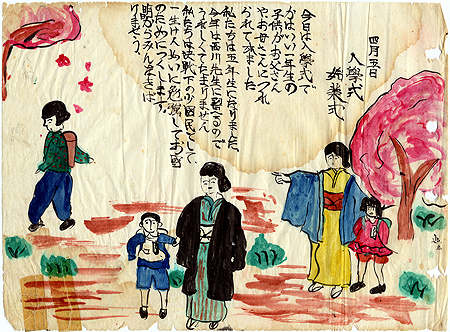 四月五日
入學式
始業式
今日は入學式で
力はいい一年生の
子供がお父さん
やお母さんにつれ
られて来ました
私たちは五年生になりました、
今年は西川先生に習へるので
うれしくてたまりません
私たちは決戰下の少國民として
一生けんめいに勉強してお國
のためにつくします。
明からみんなさは
りませう。